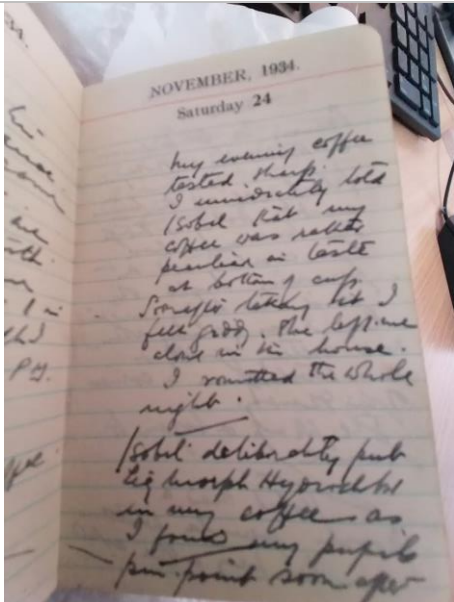 NOVEMBER, 1934.
Saturday 24
My evening coffee
tasted
I immediately told
Isobel that my
coffee was rather
peculiar in taste
at bottom of cup.
Soon after taking it I
felt giddy. She left me
alone in the house.
I vomitted the whole
night.
Isobel deliberately put
Liq Morph Hydrochlor
in my coffee as
I found my pupils
pin-point soon after